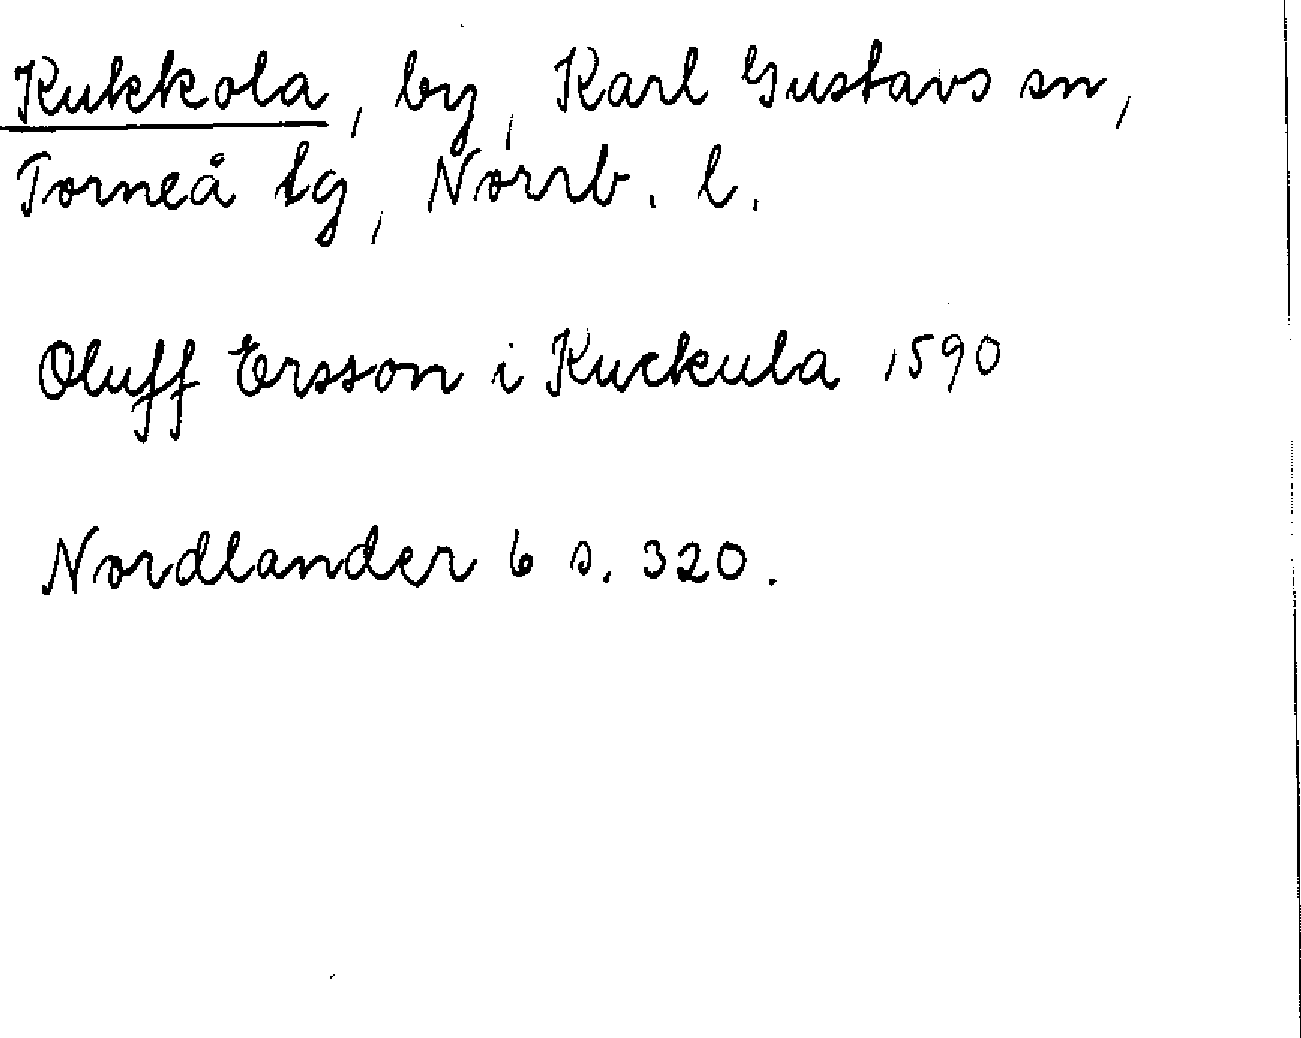 Kukkola, by, Karl Gustavs sn,
Torneå tg, Norrb. l.
Oluff Ersson i Kuckula 1590
Nordlander 6 s. 320.